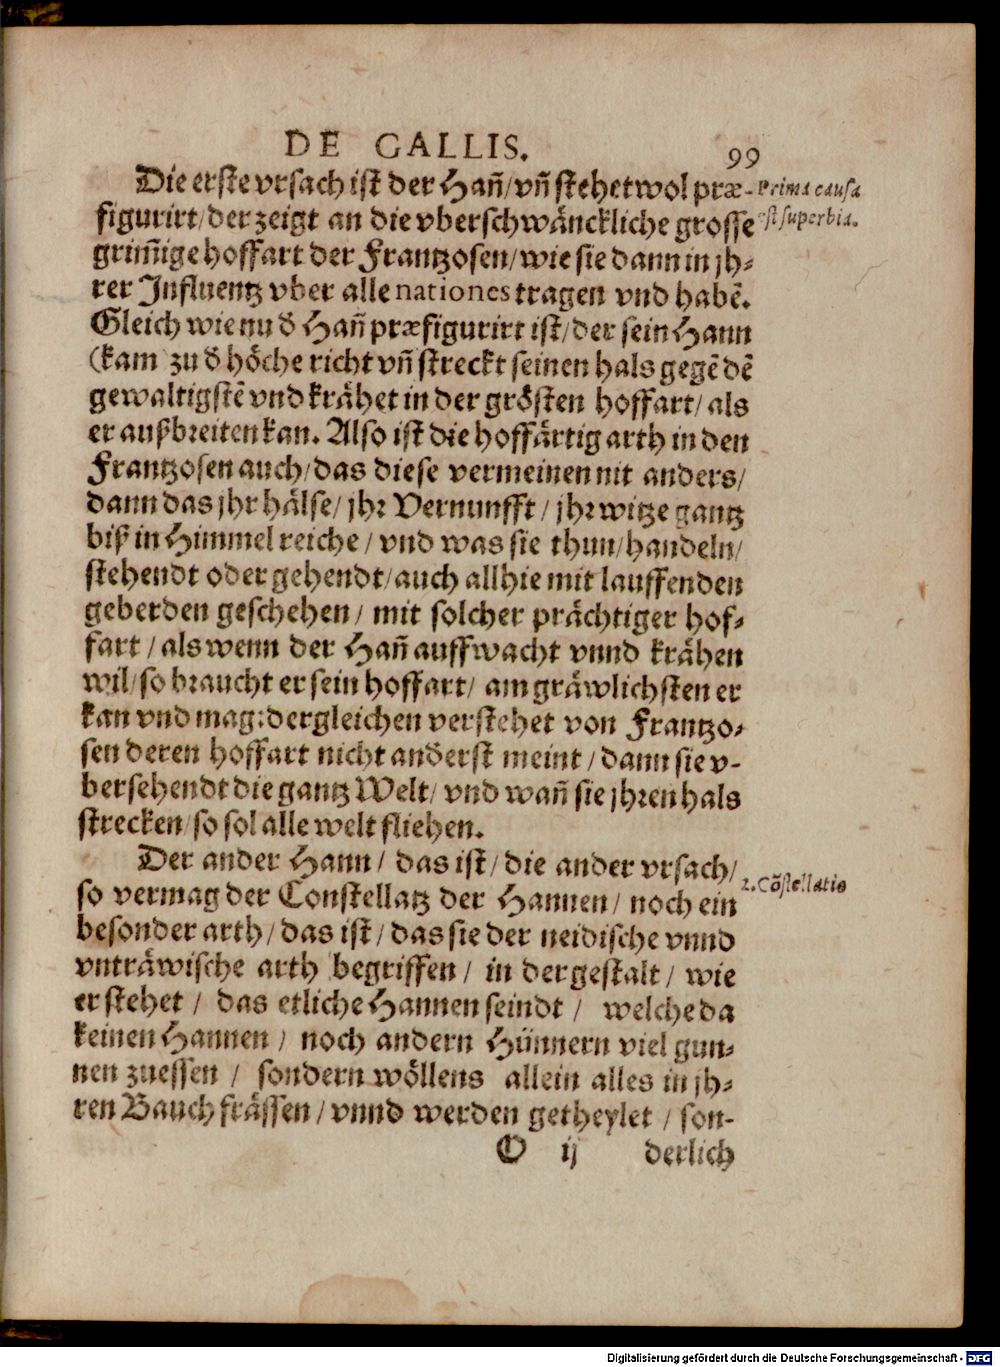 DE GALLIS. 99
Die erste vrsach ist der Hañ/vñ stehet wol præ-
Prima causa
est superbia.
figurirt/der zeigt an die vberschwänckliche grosse
grim̃ige hoffart der Frantzosen/wie sie dann in jh-
rer Influentz vber alle nationes tragen vnd habẽ.
Gleich wie nu d̕ Hañ præfigurirt ist/der sein Hann
(kam zu d̕ höche richt vñ streckt seinen hals gegẽ dẽ
gewaltigstẽ vnd krähet in der grösten hoffart/als
er außbreiten kan. Also ist die hoffärtig arth in den
Frantzosen auch/das diese vermeinen nit anders/
dann das jhr hälse/jhr Vernunfft/jhr witze gantz
biß in Himmel reiche/vnd was sie thun/handeln/
stehendt oder gehendt/auch allhie mit lauffenden
geberden geschehen/mit solcher prächtiger hof-
fart/als wenn der Hañ auffwacht vnnd krähen
wil/so braucht er sein hoffart/am gräwlichsten er
kan vnd mag:dergleichen verstehet von Frantzo-
sen deren hoffart nicht and̕erst meint/dann sie v-
bersehendt die gantz Welt/vnd wañ sie jhren hals
strecken/so sol alle welt fliehen.
Der ander Hann/das ist/die ander vrsach/
2. Cõstellatio
so vermag der Constellatz der Hannen/noch ein
besonder arth/das ist/das sie der neidische vnnd
vnträwische arth begriffen/in der gestalt/wie
er stehet/das etliche Hannen seindt/welche da
keinen Hannen/noch andern Hünnern viel gun-
nen zuessen/sondern wöllens allein alles in jh-
ren Bauch frässen/vnnd werden getheylet/son-
O ij derlich
Digitalisierung gefördert durch die Deutsche Forschungsgemeinschaft - DFG